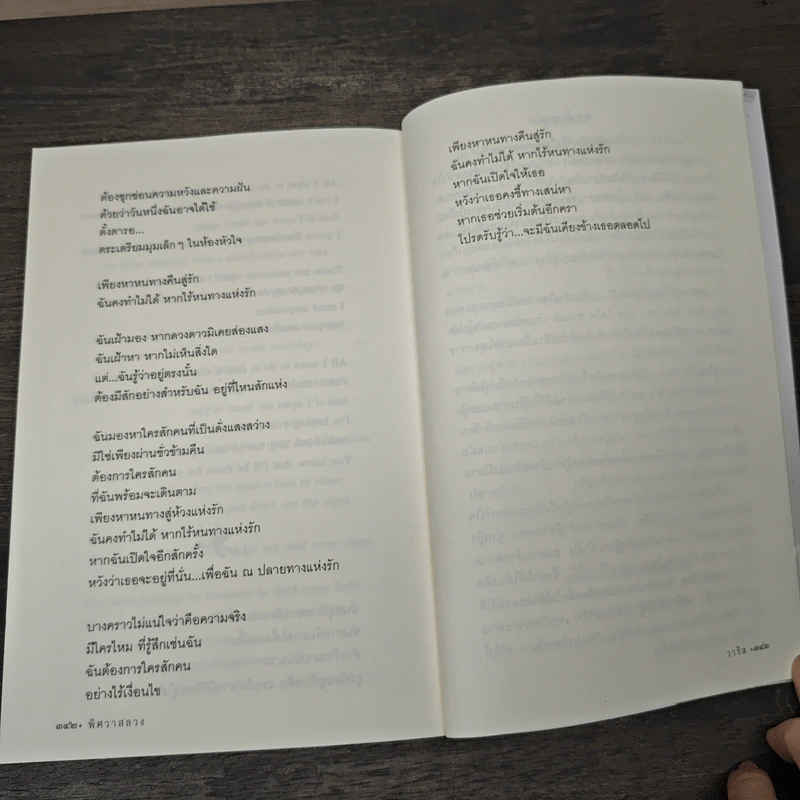 ต้องซุกซ่อนความหวังและความฝัน
ด้วยว่าวันหนึ่งฉันอาจได้ใช้
ตั้งตารอ...
ตระเตรียมมุมเล็กๆ ในห้องหัวใจ
เพียงหาหนทางคืนสู่รัก
ฉันคงทำไม่ได้ หากไร้หนทางแห่งรัก
ฉันเฝ้ามอง หากดวงดาวมิเคยส่องแสง
ฉันเฝ้าหา หากไม่เห็นสิ่งใด
แต่...ฉันรู้ว่าอยู่ตรงนั้น
ต้องมีสักอย่างสำหรับฉัน อยู่ที่ไหนสักแห่ง
ฉันมองหาใครสักคนที่เป็นดั่งแสงสว่าง
มิใช่เพียงผ่านชั่วข้ามคืน
ต้องการใครสักคน
ที่ฉันพร้อมจะเดินตาม
เพียงหาหนทางสู่ห้วงแห่งรัก
ฉันคงทำไม่ได้ หากไร้หนทางแห่งรัก
หากฉันเปิดใจอีกสักครั้ง
หวังว่าเธอจะอยู่ที่นั่น...เพื่อฉัน ณ ปลายทางแห่งรัก
บางคราวไม่แน่ใจว่าคือความจริง
มีใครไหม ที่รู้สึกเช่นฉัน
ฉันต้องการใครสักคน
อย่างไร้เงื่อนไข
๓๔๒• พิศวาสลวง
เพียงหาหนทางคืนสู่รัก
ฉันคงทำไม่ได้ หากไร้หนทางแห่งรัก
หากฉันเปิดใจให้เธอ
หวังว่าเธอคงชี้ทางเสน่หา
หากเธอช่วยเริ่มต้นอีกครา
โปรดรับรู้ว่า...จะมีฉันเคียงข้างเธอตลอดไป
วาริส •๓๔๓